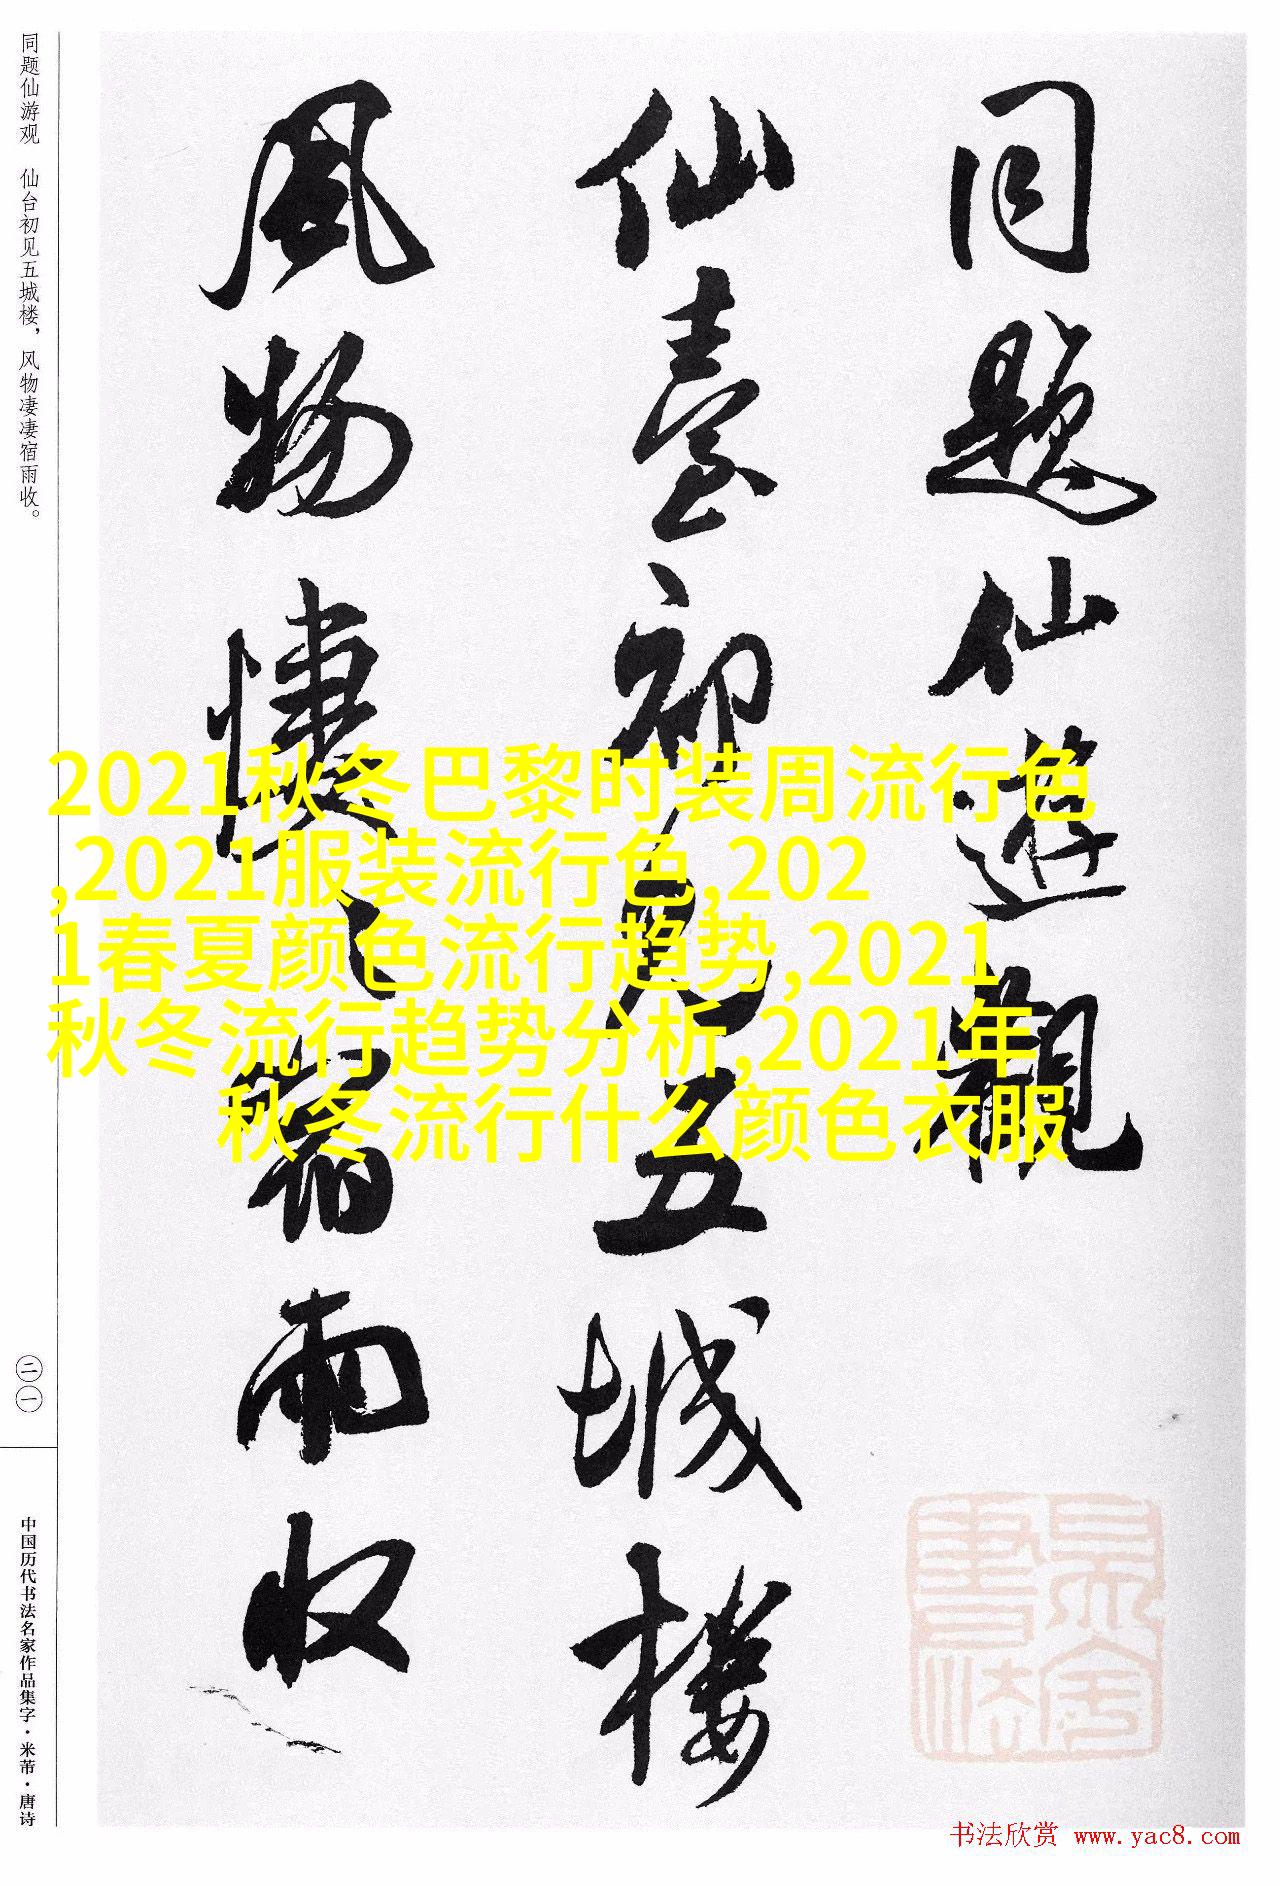 同題仙遊觀
仙臺初見五城樓
風物悽々宿雨收
同题仙游观　仙台初见五城楼，风物凄凄宿雨收。
二一
中国历代书法名家作品集字·米芾·唐诗
2021秋冬巴黎时装周流行色
,2021服装流行色,202
1春夏颜色流行趋势,2021
秋冬流行趋势分析,2021年
秋冬流行什么颜色衣服
书法欣赏 www.yac8.com